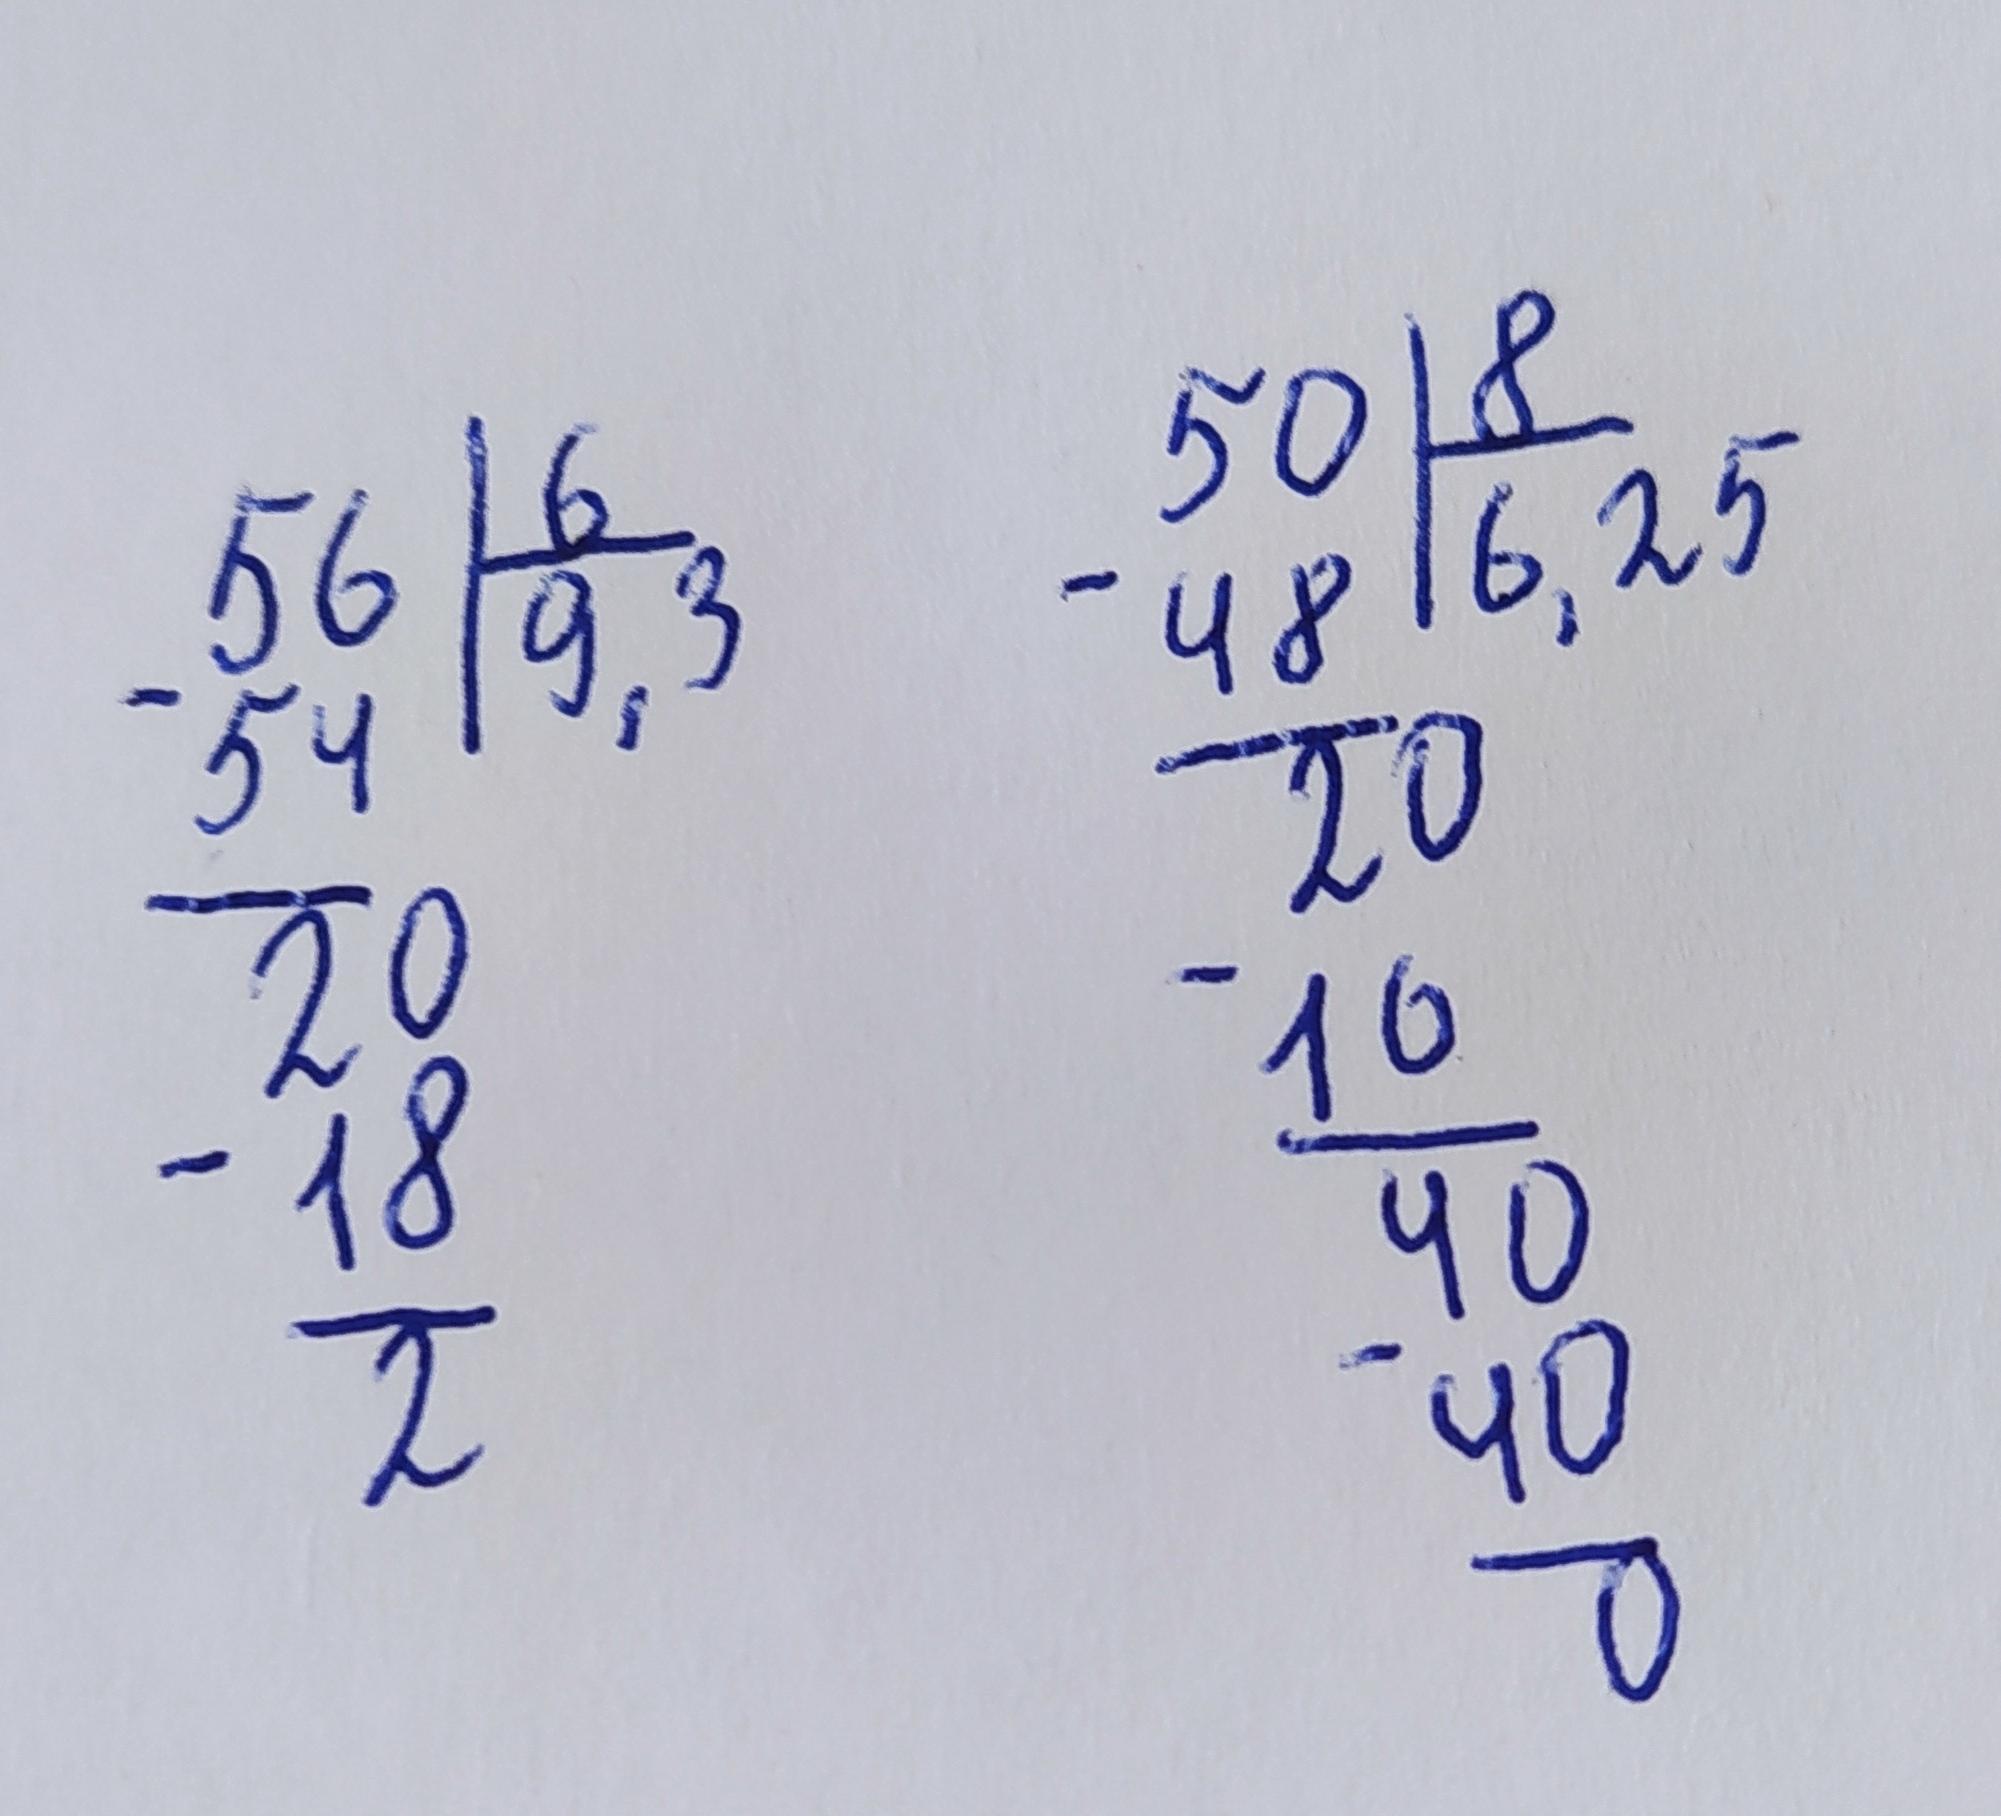 56 | 6
- 54 | 9,3
20
- 18
2
50 | 8
- 48 | 6,25
20
- 16
40
- 40
0